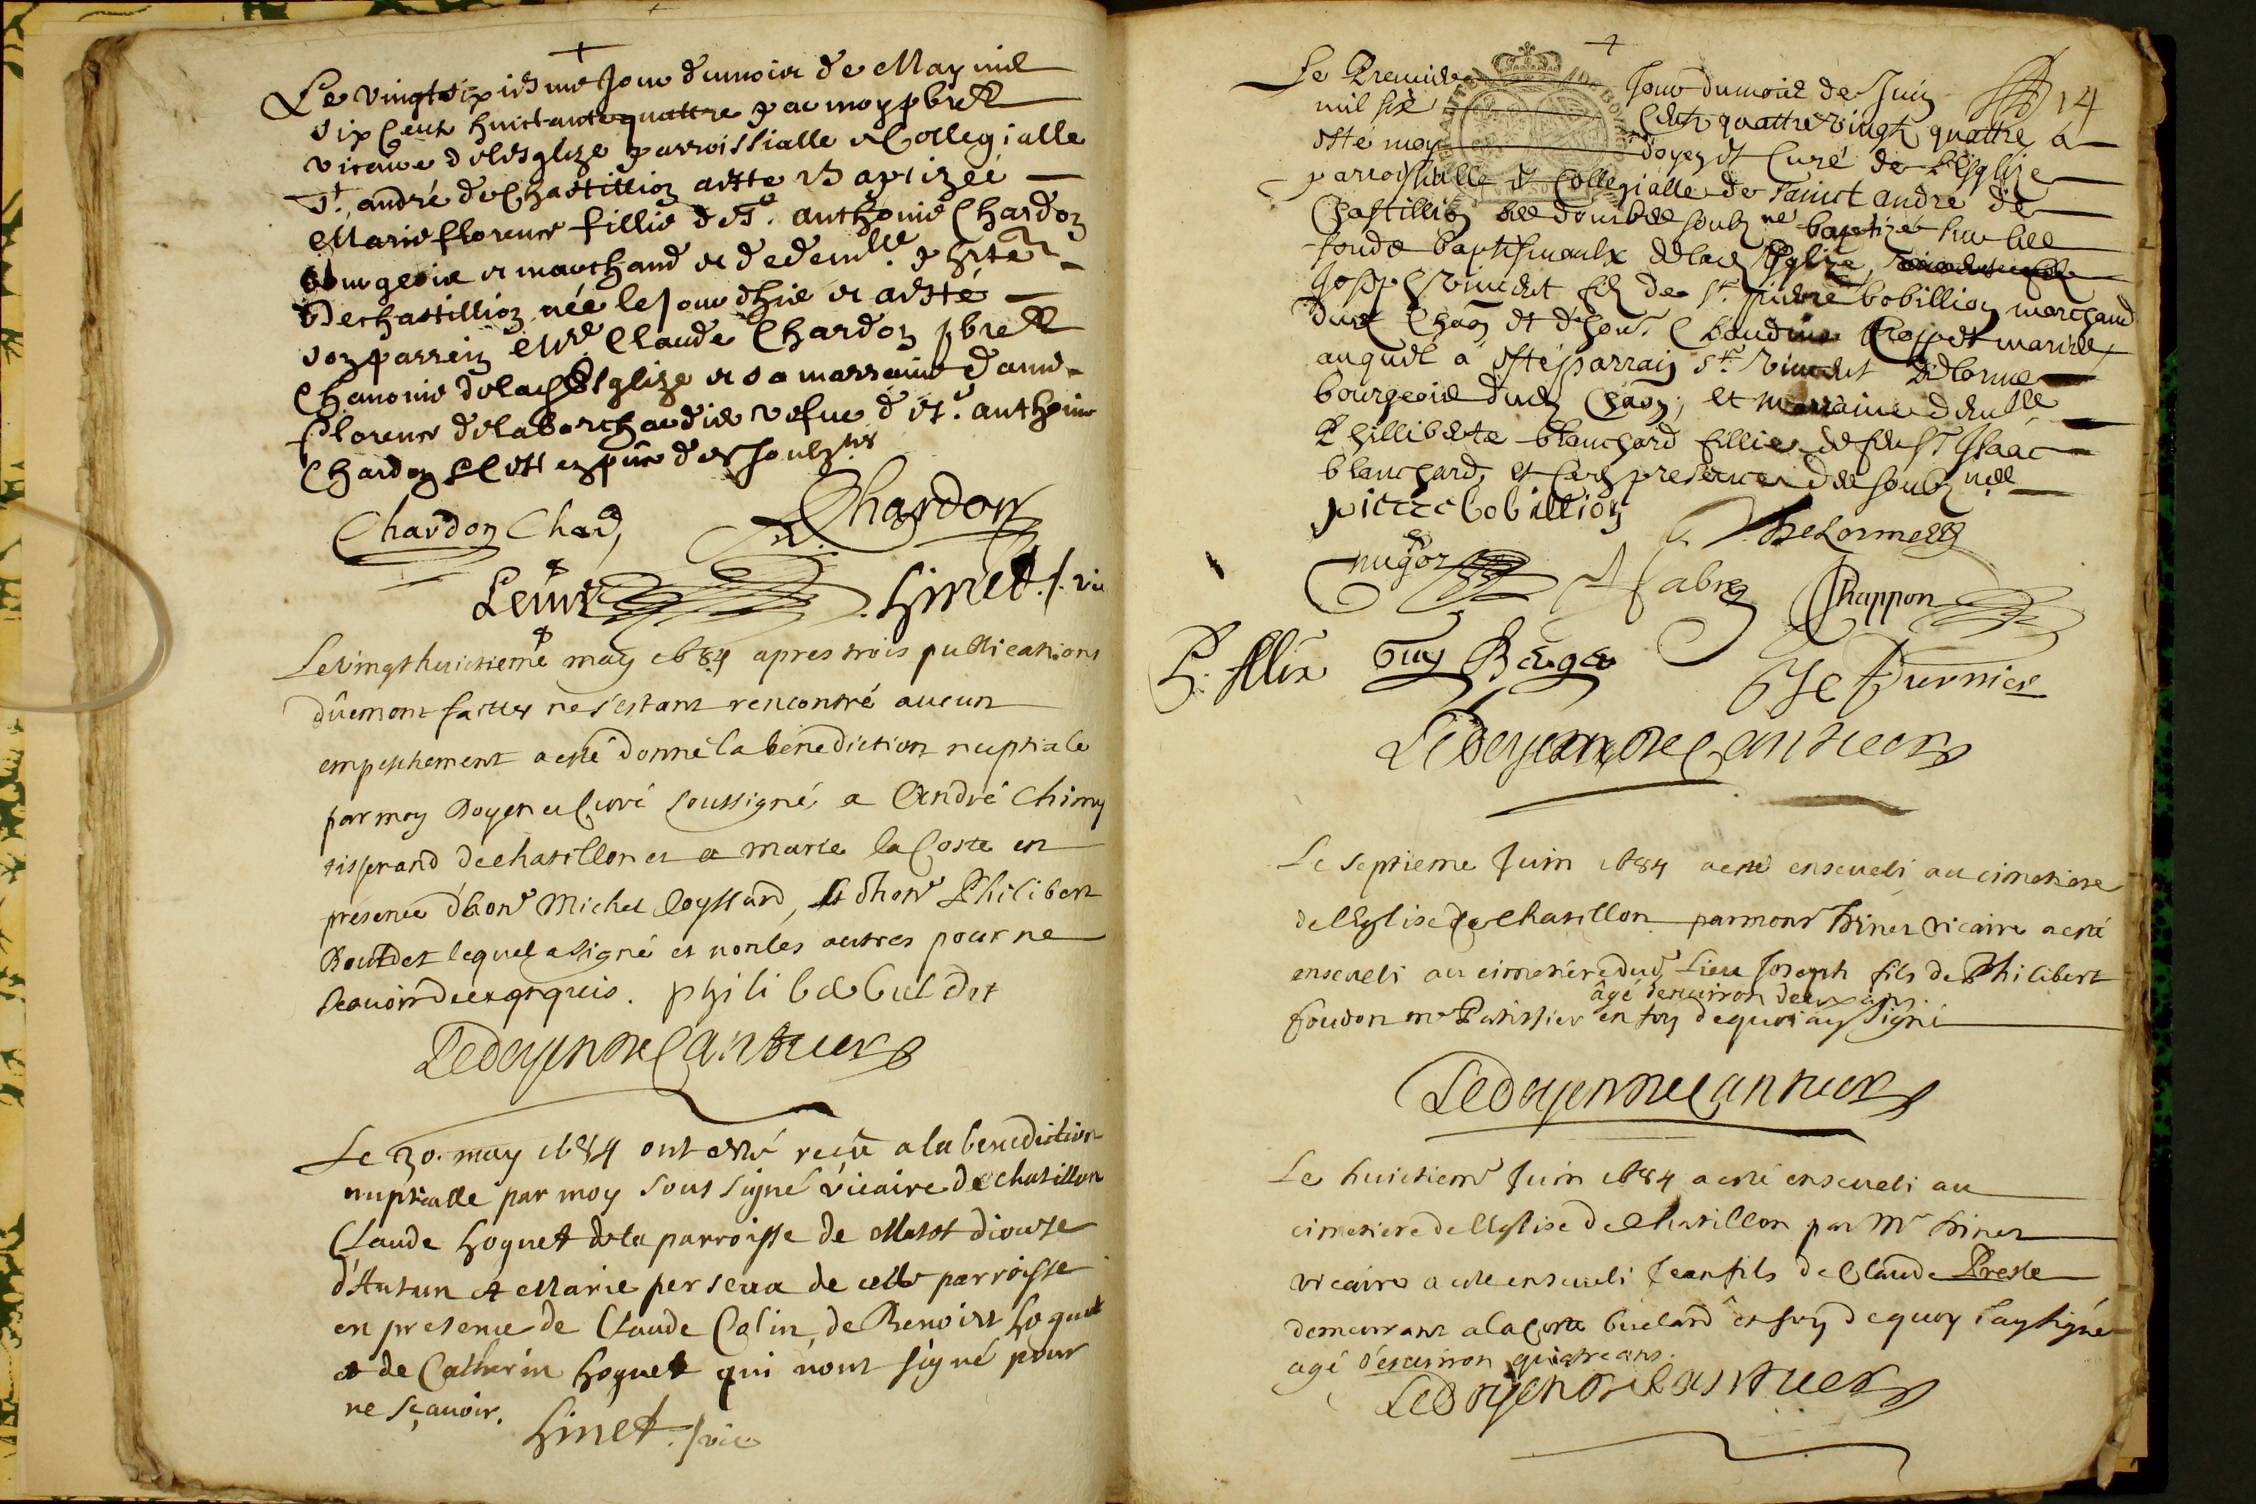 Le vingt sixiesme Jour du mois de May mil
six Cents huictante quattre par moy pbre
vicaire de lesglize parroissialle et Collegialle
St. andré de Chastillion a esté Baptizéé
Marie florence fillie de Sr. anthoine Chardon
bourgeois et marchand et de demlle
de chastillion née le Jour dhier et a esté
son parrein Mre Claude Chardon pbre
Chanoine de lad Esglize et sa marraine dame
florence de la vefue de Sr. anthoine
Chardon en pnce des soubznes
Chardon Chard
Chardon
Hinet. vic
Le vingt huictieme may 1684 apres trois publications
dûement faittes ne s'estant rencontré aucun
empeschement a esté donné la benediction nuptiale
par moy Doyen et Curé soussigné a André Chimy
tisserand de chatillon et a marie la Coste en
presence d'honr Michel Coyssard, et d'honr Philibert
Bouldet lequel a signé et non les autres pour ne
scauoir de ce requis. philiber buldet
Le doyen De Cantuers
Le 30. may 1684 ont esté receu a la benediction
nuptialle par moy sous signé vicaire de chatillon
Claude hoquet de la parroisse de diocese
d'Autun et Marie perseua de cette parroisse
en presence de Claude Colin, de Benoist hoquet
et de Catherin hoquet qui n'ont signé pour
ne sçauoir.
Hinet. vic
Le Premier Jour du mois de Juin 14
mil six Cents quattre vingt quattre a
esté moy doyen et Curé de l'Esglize
parroissialle et Collegialle de Sainct André de
Chastillion les dombes soubzne baptizé sur les
fonds baptismaulx de lad Esglize
Joseph vincent filz de Sr. pierre bobillion marchand
dud Chaon et d'honr. Claudine mariez
auquel a esté parrain Sr. vincent Delorme
bourgeois dud Chaon, et marraine demlle
Philliberte blanchard fillie de feu Sr Isaac
blanchard, et ce en presence des soubznes
pierre bobillion
Delorme
Fabry
Chappon
P. Alix Guy Berger
Le doyen De Cantuers
Le septieme Juin 1684 a esté enseueli au cimetiere
de l'Eglise de Chatillon par monr hinet vicaire a esté
enseueli au cimetiere dud Lieu Joseph fils de Philibert
âgé d'enuiron deux ans.
foudon me Patissier en foy de quoi ay signé
Le doyen De Cantuers
Le huictieme Juin 1684 a esté enseueli au
cimetiere de l'Eglise de Chatillon par Mr hinet
vicaire a esté enseueli Jean fils de Claude Presle
demeurant a la Coste en foy de quoy j'ay signé
agé d'enuiron quatre ans.
Le doyen De Cantuers